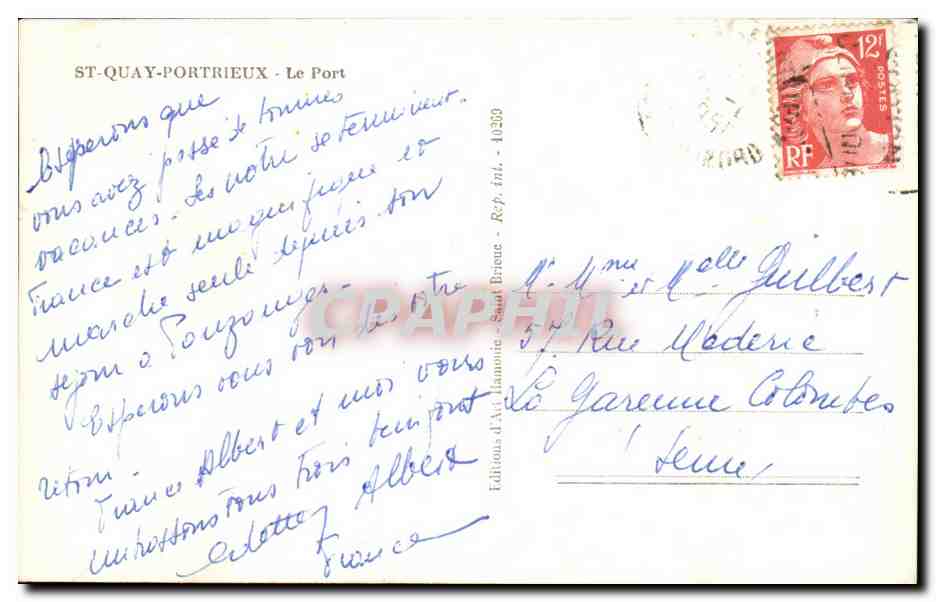 ST-QUAY-PORTRIEUX - Le Port
Esperons que
vous avez passé de bonnes
vacances. Les notre se terminent.
France est magnifique et
marche seule depuis son
sejour a Pouzauges.
Esperons vous voir des votre
retour.
France Albert et moi vous
embrassons tous trois bien fort
Odette Albert
France
Editions d'Art Hamonic - Saint Brieuc - Rep. int. - 10269
12F
POSTES
RF
CPAPHIL
Mr Mme et Melle Guilbert
57 Rue Maderic
La Garenne Colombes
Seine